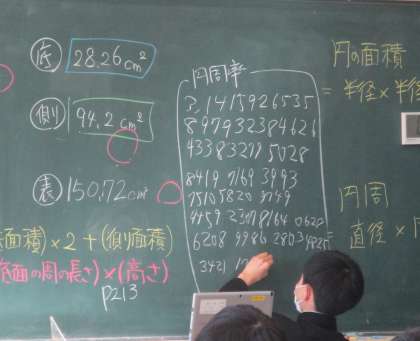 底 28.26cm²
側 94.2cm²
表 150.72cm²
面積)×2+(側面積)
底面の周の長さ)×(高さ)
P213
円周率
3.1415926535
897932384626
4338327 5028
8419 7169 3993
7510 5820 9749
4459 2307 8164 0628
6208 9986 2803 4825
3421 1
円の面積
=半径×半径
円周
=直径×円